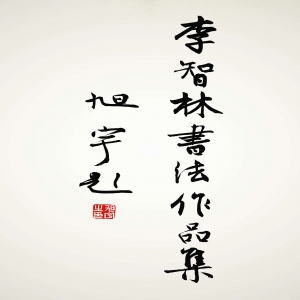 李智林書法作品集
旭宇题